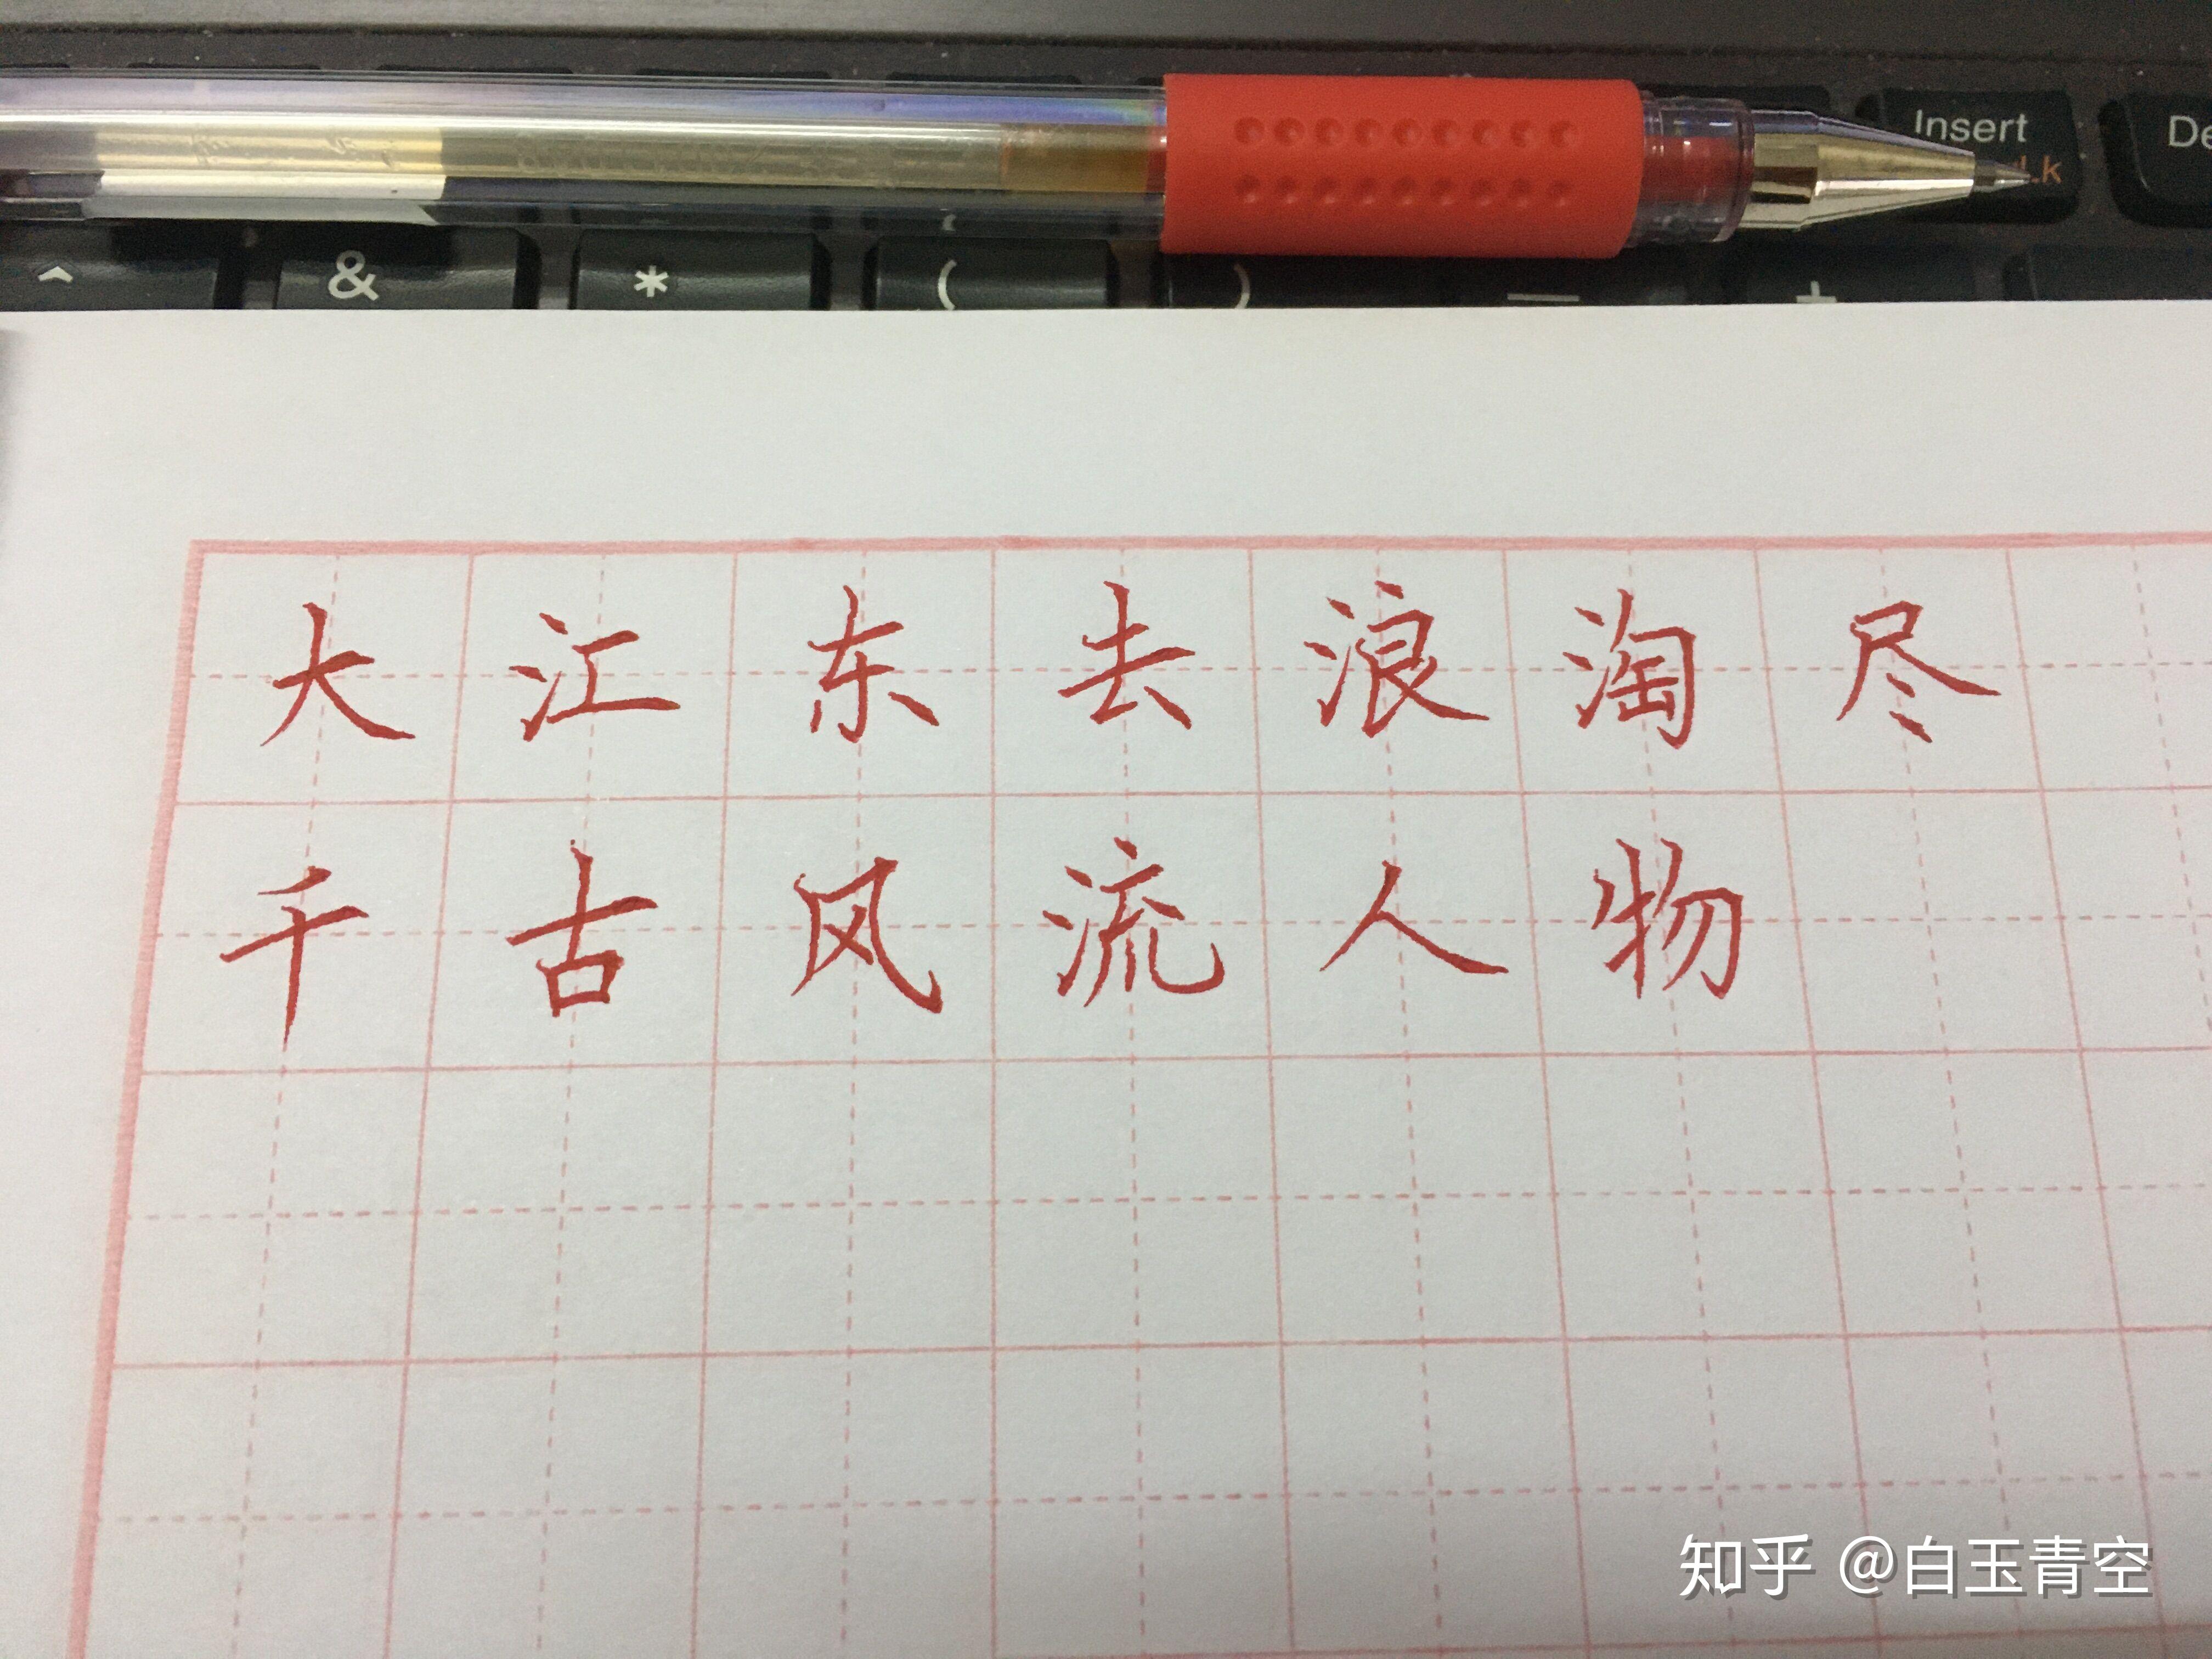 Insert
De
Lk
^
&
*
(
)
—
+
大江东去浪淘尽
千古风流人物
知乎 @白玉青空